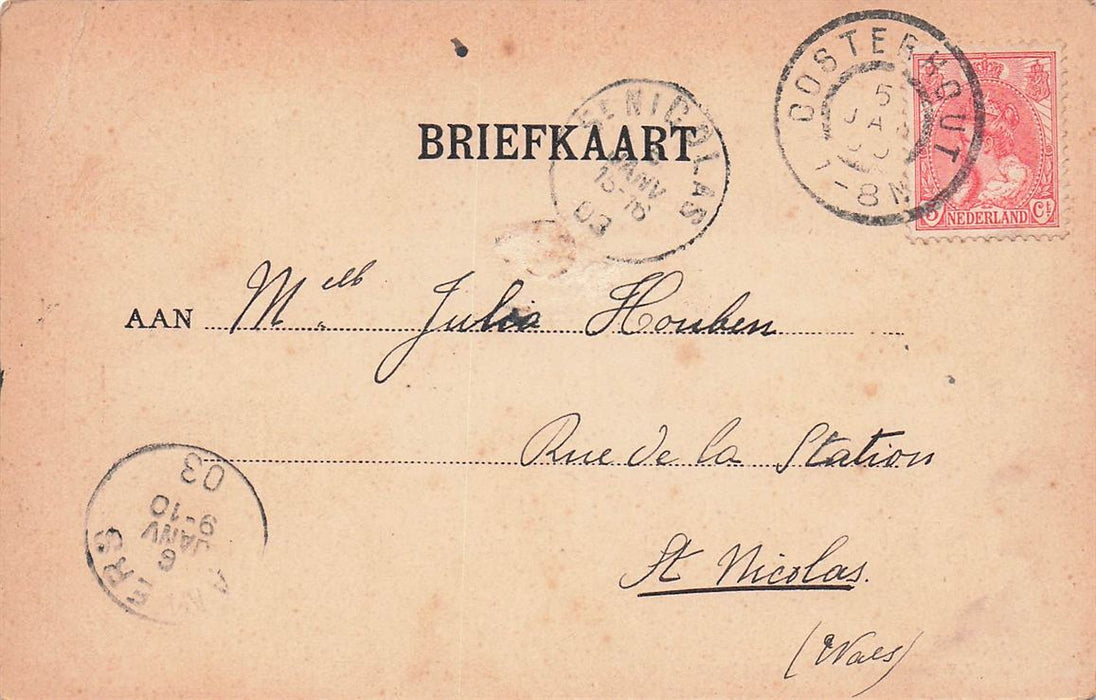 OOSTERHOUT
5
JA
7-8N
5 NEDERLAND Ct
ST NICOLAS
JANV
15-16
03
BRIEFKAART
AAN Melle Julia Houben
Rue de la Station
St Nicolas.
(Waes)
03
9-10
JANV
6